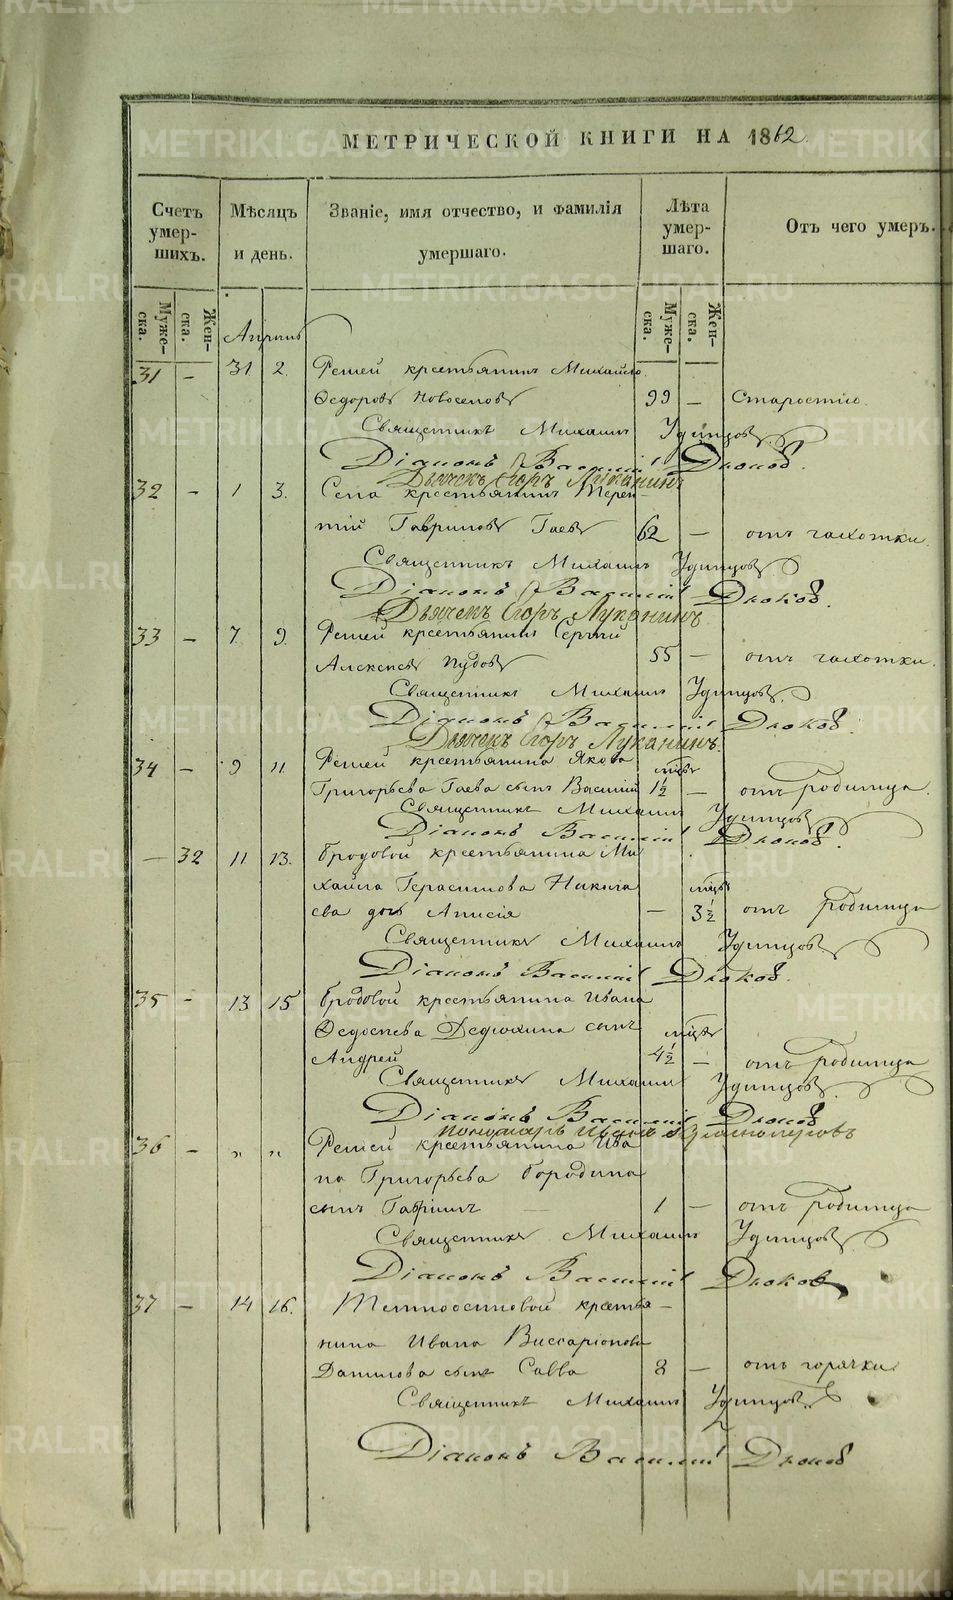 МЕТРИЧЕСКОЙ КНИГИ НА 1862
Счетъ умер-шихъ.
Мѣсяцъ и день.
Званіе, имя отчество, и фамилія умершаго.
Лѣта умер-шаго.
Отъ чего умеръ.
Муже-ска.
Жен-ска.
Муже-ска.
Жен-ска.
Апрѣль
31 - 31 2. Решей крестьянинъ Михайло
Ѳедоровъ Новоселовъ 99 - Старостію.
Священникъ Михаилъ Удинцовъ
Діаконъ Василій
Дьячекъ Егоръ Луканинъ
32 - 1 3. Села крестьянинъ Терен-
тій Гавриловъ Гаевъ 62 - отъ чахотки.
Священникъ Михаилъ Удинцовъ
Діаконъ Василій
Дьячекъ Егоръ Луканинъ
33 - 7 9. Решей крестьянинъ Сергій
Алексѣевъ Пудовъ 55 - отъ чахотки.
Священникъ Михаилъ Удинцовъ
Діаконъ Василій
Дьячекъ Егоръ Луканинъ.
34 - 9 11 Решей крестьянина Якова
Григорьева Гаева сынъ Василій мцвъ 1½ - отъ родимца.
Священникъ Михаилъ Удинцовъ
Діаконъ Василій
- 32 11 13. Бродовой крестьянина Ми
хайла Герасимова Никола
ева дочь Анисія - мцвъ 3½ отъ родимца
Священникъ Михаилъ Удинцовъ
Діаконъ Василій
35 - 13 15 Бродовой крестьянина Ивана
Ѳедосѣева Дедюхина сынъ мцвъ
Андрей 4½ - отъ родимца
Священникъ Михаилъ Удинцовъ
Діаконъ Василій
Пономарь Иванъ
36 - " " Решей крестьянина Ива
на Григорьева Бородина
сынъ Гавріилъ 1 - отъ родимца
Священникъ Михаилъ Удинцовъ
Діаконъ Василій
37 - 14 16. Темноосиновой крестья-
нина Ивана Виссаріонова
Данилова сынъ Савва 8 - отъ горячки
Священникъ Михаилъ Удинцовъ
Діаконъ Василій
METRIKI.GASO-URAL.RU